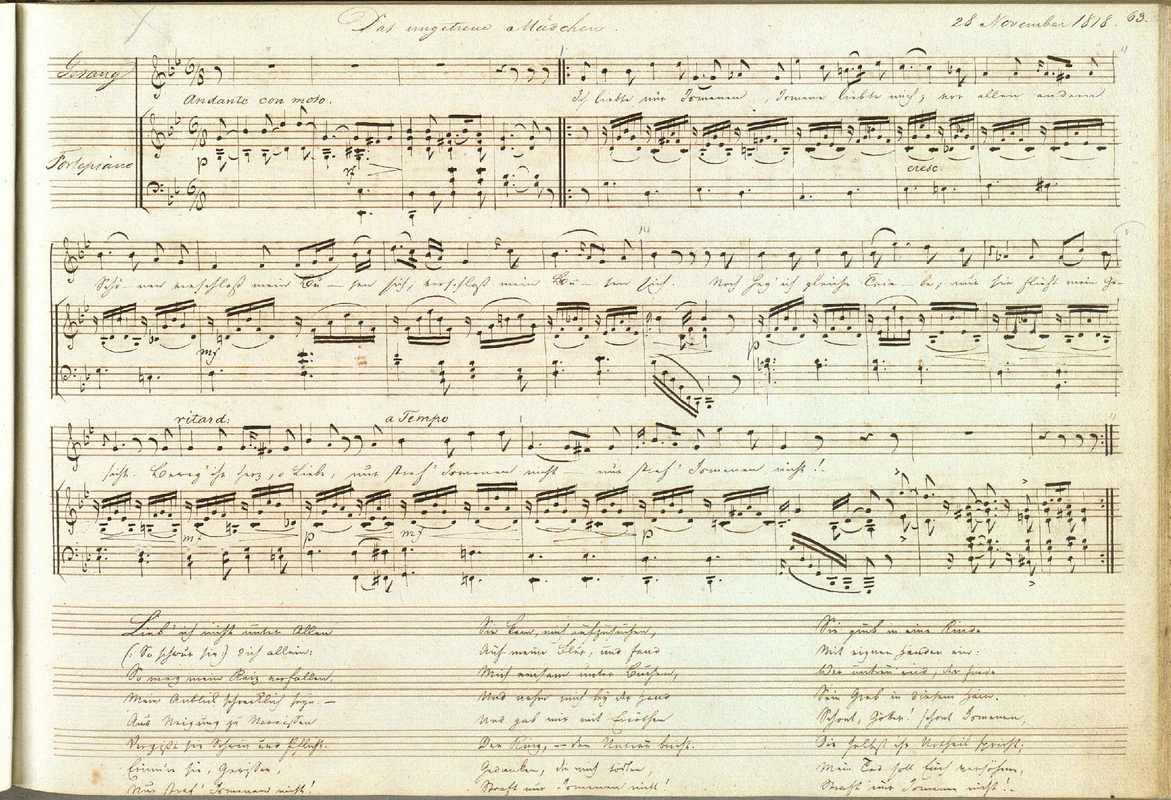 Das ungetreue Mädchen.
28 November 1818. 63.
Gesang
Andante con moto.
Ich liebte nur Ismenen, Ismene liebte mich; vor allen anderen
Fortepiano
p
cresc.
Schö-nen verschloß mein Bu-sen sich, verschloß mein Bu-sen sich Noch heg' ich gleiche Trie-be; nur sie flieht mein Ge-
mf p
ritard: a Tempo
sicht. Beweg' ihr Herz, o Liebe, nur straf' Ismenen nicht nur straf' Ismenen nicht!
p mf p
Lieb' ich nicht unter Allen
(: So schwur sie:) dich allein:
So mag mein Reiz verfallen,
Mein Anblick schrecklich seyn. —
Aus Neigung zu Narcissen
Vergißt sie Schwur und Pflicht.
Erinn're sie, Gewissen,
Nur straf' Ismenen nicht!
Sie kam, mich aufzusuchen,
Auf meine Flur, und fand
Mich einsam unter Buchen,
Und nahm mich bey der Hand
Und gab mir mit Erröthen
Den Ring, — den Untreu bricht.
Gedanken, die mich tödten,
Straft nur Ismenen nicht!
Sie grub in eine Rinde
Mit eignen Händen ein:
Wer untreu wird, der finde
Sein Grab in diesem Hain.
Schont, Götter! schont Ismenen,
Die selbst ihr Urtheil spricht;
Mein Tod soll Euch versöhnen,
Straft nur Ismenen nicht!